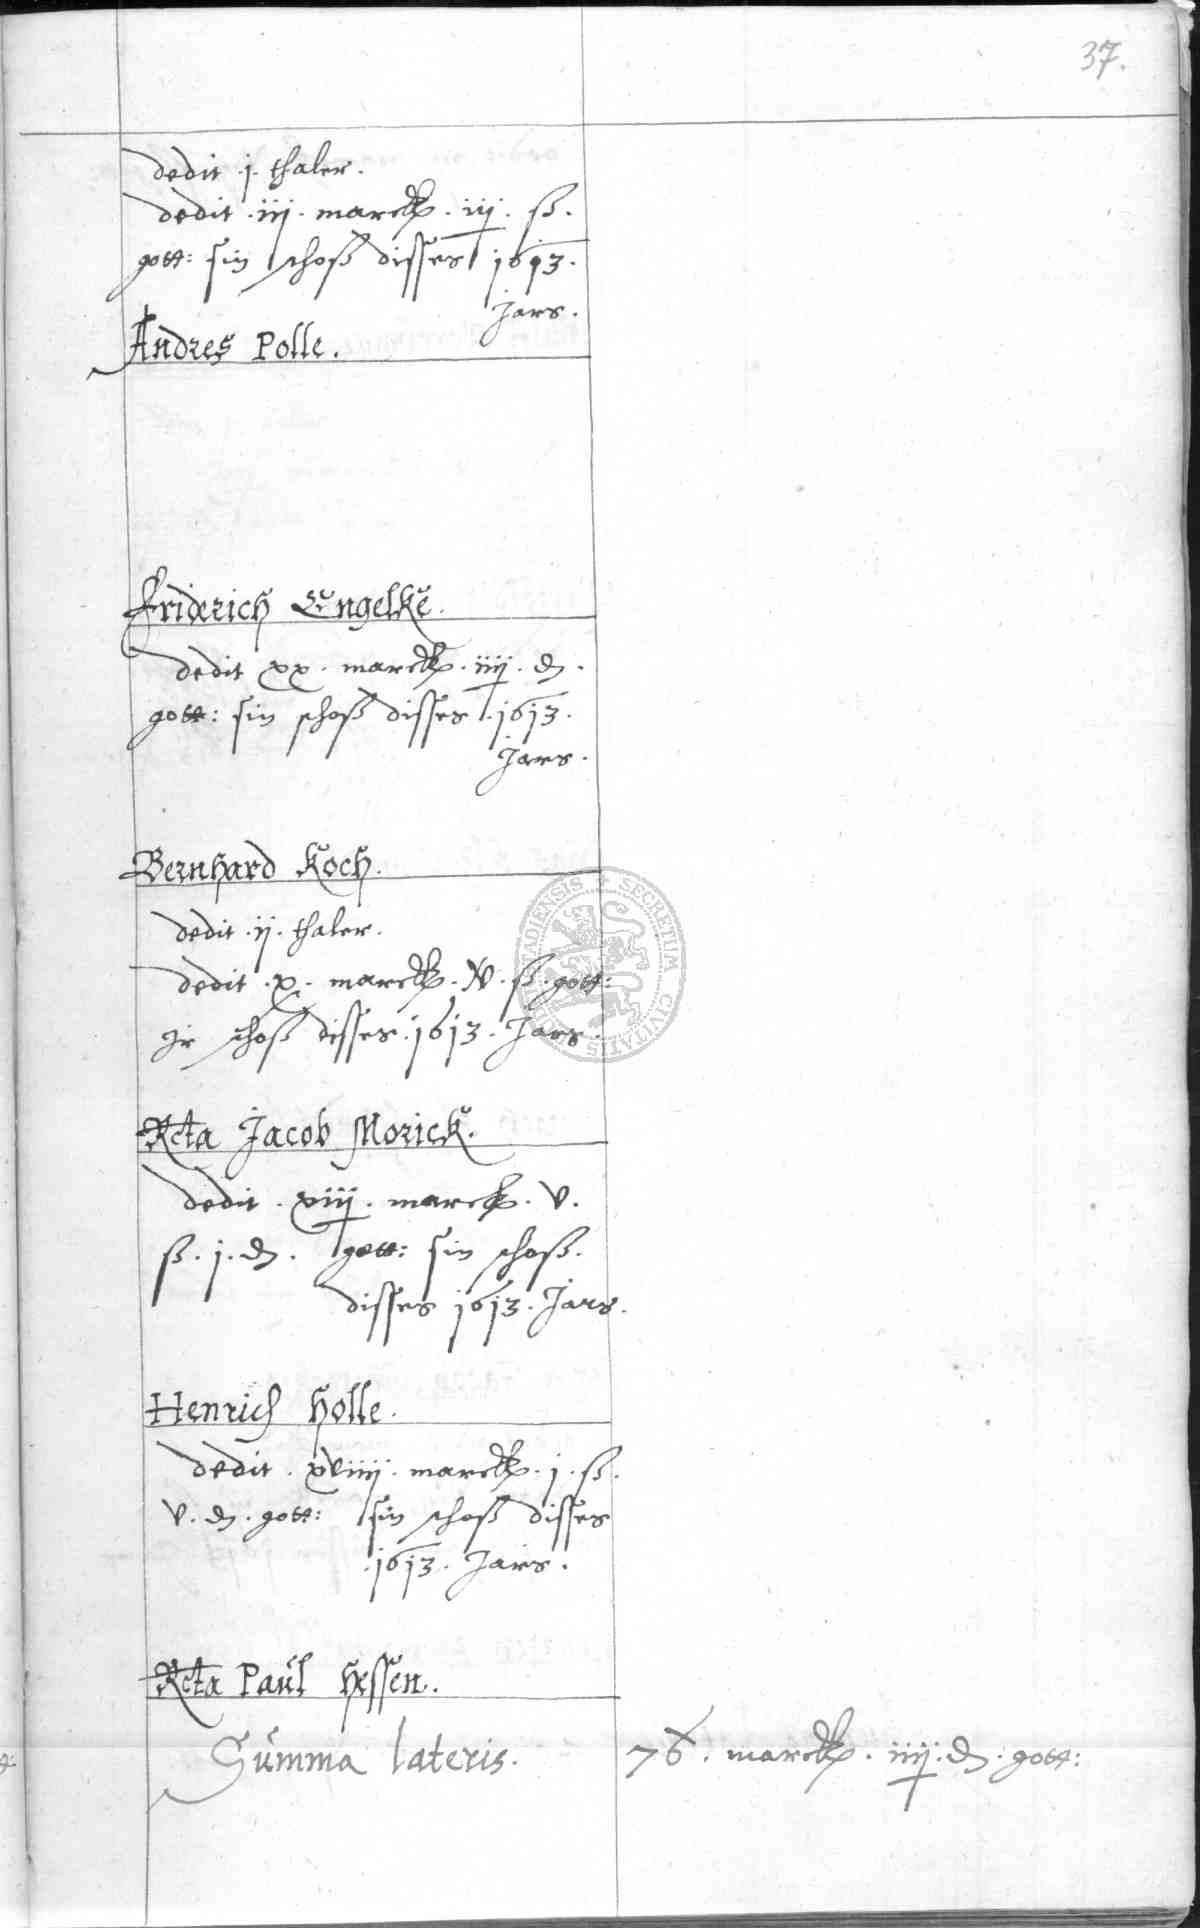 37.
dedit .j. thaler.
dedit .iij. marck. iij. ß.
gott: sin schoß disses 1613.
Jars.
Andres Polle.
Friderich Engelke.
dedit xx. marck. iiij. d.
gott: sin schoß disses .1613.
Jars.
Bernhard Koch.
dedit .ij. thaler.
dedit .x. marck. ß. gott:
Ir schoß disses .1613. Jars.
Rcta Jacob Morick.
dedit . xiij. marck. v.
ß. j. d. gott: sin schoß.
disses 1613. Jars.
Henrich Holle.
dedit . xviiij. marck. j. ß.
v. d. gott: sin schoß disses
.1613. Jars.
Rcta Paul Hessen.
Summa lateris. 76. marck. iiij. d. gott:
SECRETUM CIVITATIS